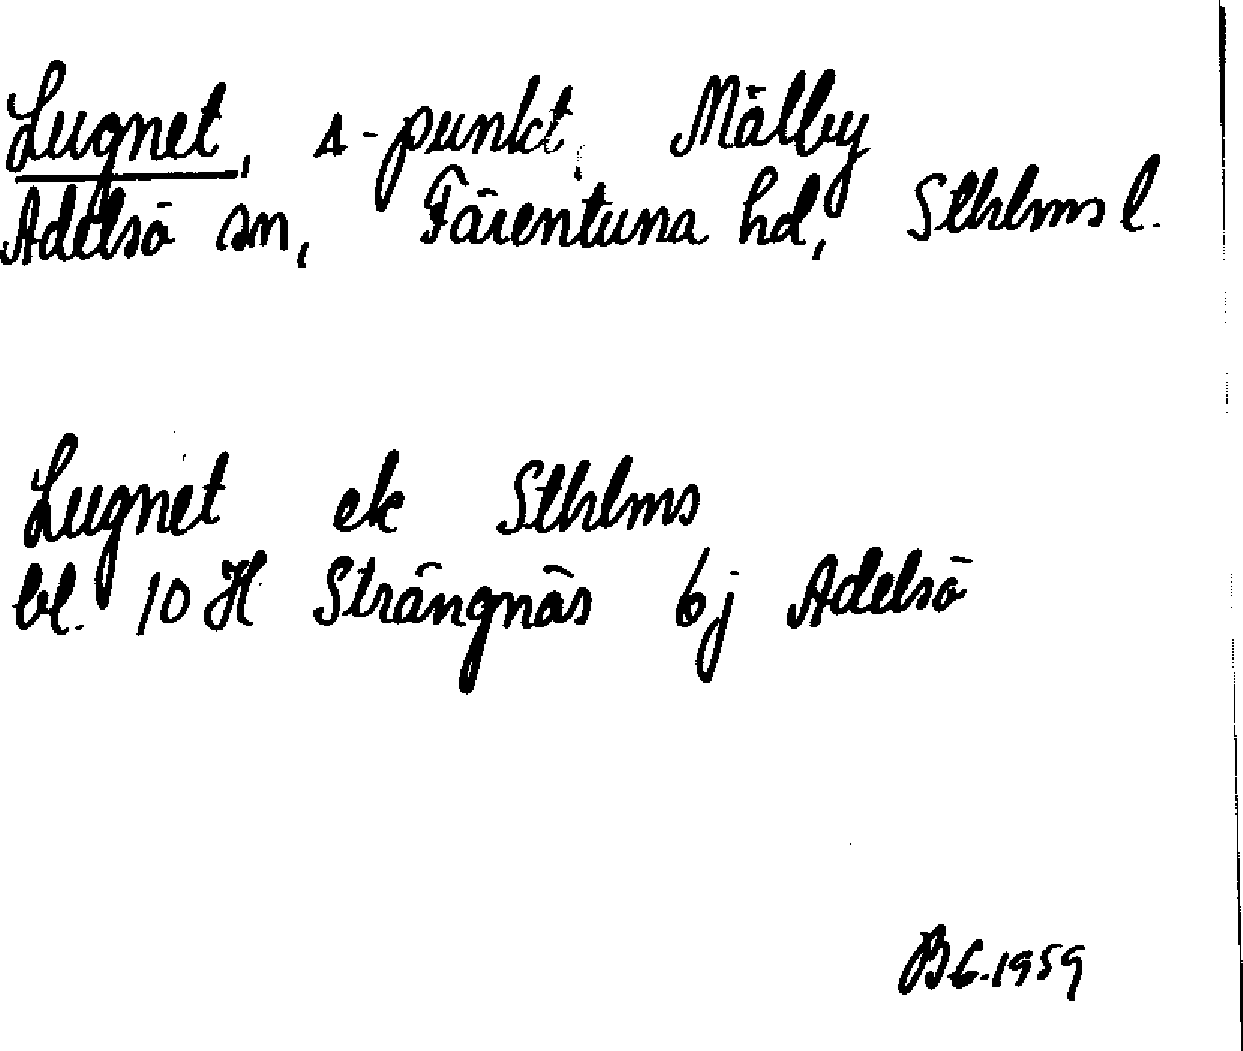 Lugnet, s-punkt, Mälby
Adelsö sn, Färentuna hd, Sthlms l.
Lugnet ek Sthlms
bl. 10 H Strängnäs 6j Adelsö
BG.1959